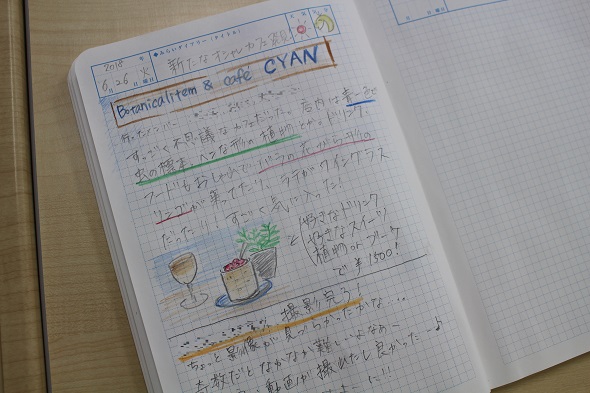 2018 年
●みらいダイアリー(タイトル)
6月26日 火曜日
新たなオシャレカフェ発見
Botanicalitem & café CYAN
すっごく不思議なカフェだった。店内は青一色で
虫の標本、ヘンな形の植物とか。ドリンク、
フードもおしゃれで、バラの花がらが
リーブが乗ってたり、ラテがワイングラス
だったり！すごく気に入った！
と
好きなドリンク
好きなスイーツ
植物 or ブーケ
で￥1500！
撮影完了！
ちょっと影像が見づらかったかな…
奇数だとなかなか難しいよなぁ〜
動画が撮れたし良かった〜♪